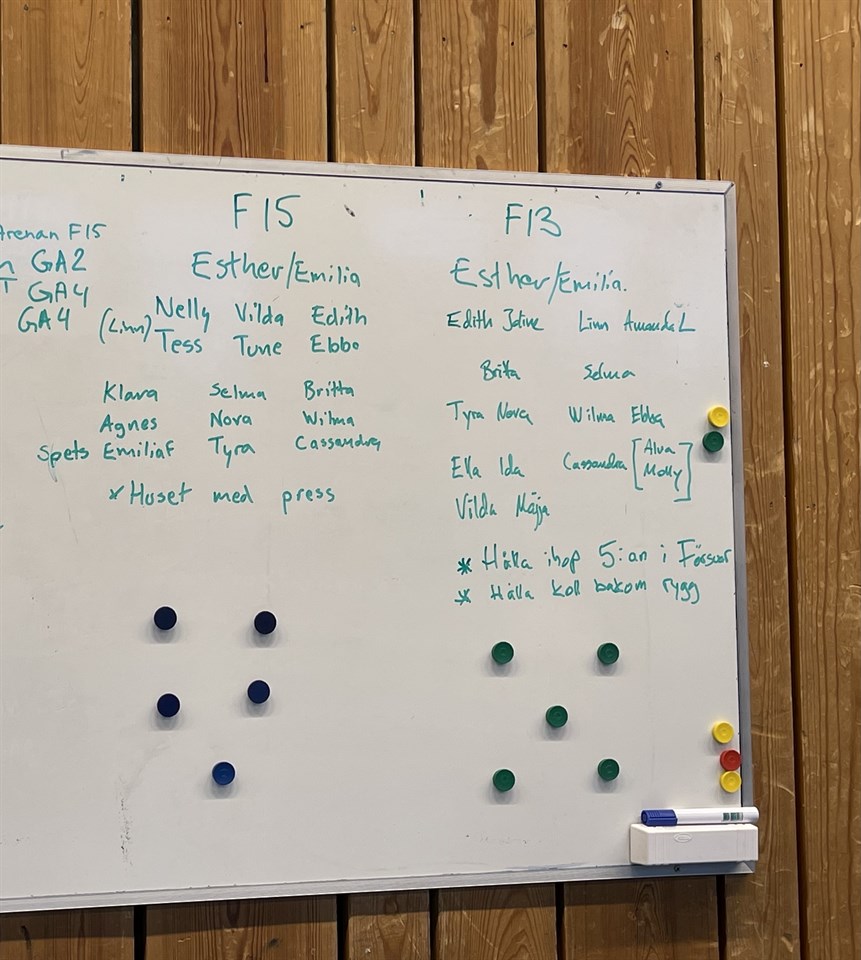 Arenan F15
GA2
GA4
GA4
F15
Esther/Emilia
(Linn) Nelly Vilda Edith
Tess Tune Ebba
Klara Selma Britta
Agnes Nova Wilma
Spets Emilia F Tyra Cassandra
* Huset med press
F13
Esther/Emilia.
Edith Linn Amanda L
Britta Selma
Tyra Nova Wilma Ebba
Ella Ida Cassandra [Alva
Molly]
Vilda Majja
* Hålla ihop 5:an i Försvar
* Hålla koll bakom rygg